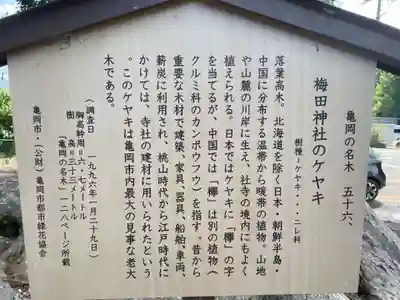 亀岡の名木　五十六、
梅田神社のケヤキ
樹種－ケヤキ・・・ニレ科
落葉高木。北海道を除く日本・朝鮮半島・
中国に分布する温帯から暖帯の植物。山地
や山麓の川岸に生え、社寺の境内にもよく
植えられる。日本ではケヤキに「欅」の字
を当てるが、中国では「欅」は別の植物（
クルミ科のカンポウフウ）を指す。昔から
重要な木材で建築、家具、器具、船舶、車両、
薪炭に利用され、桃山時代から江戸時代に
かけては、寺社の建材に用いられたという
。このケヤキは亀岡市内最大の見事な老大
木である。
（調査日　一九九六年一月二十九日）
胸高幹周＝六・八メートル
樹　高＝三十三メートル
「亀岡の名木」一二八ページ所載
亀岡市・（公財）亀岡市都市緑花協会